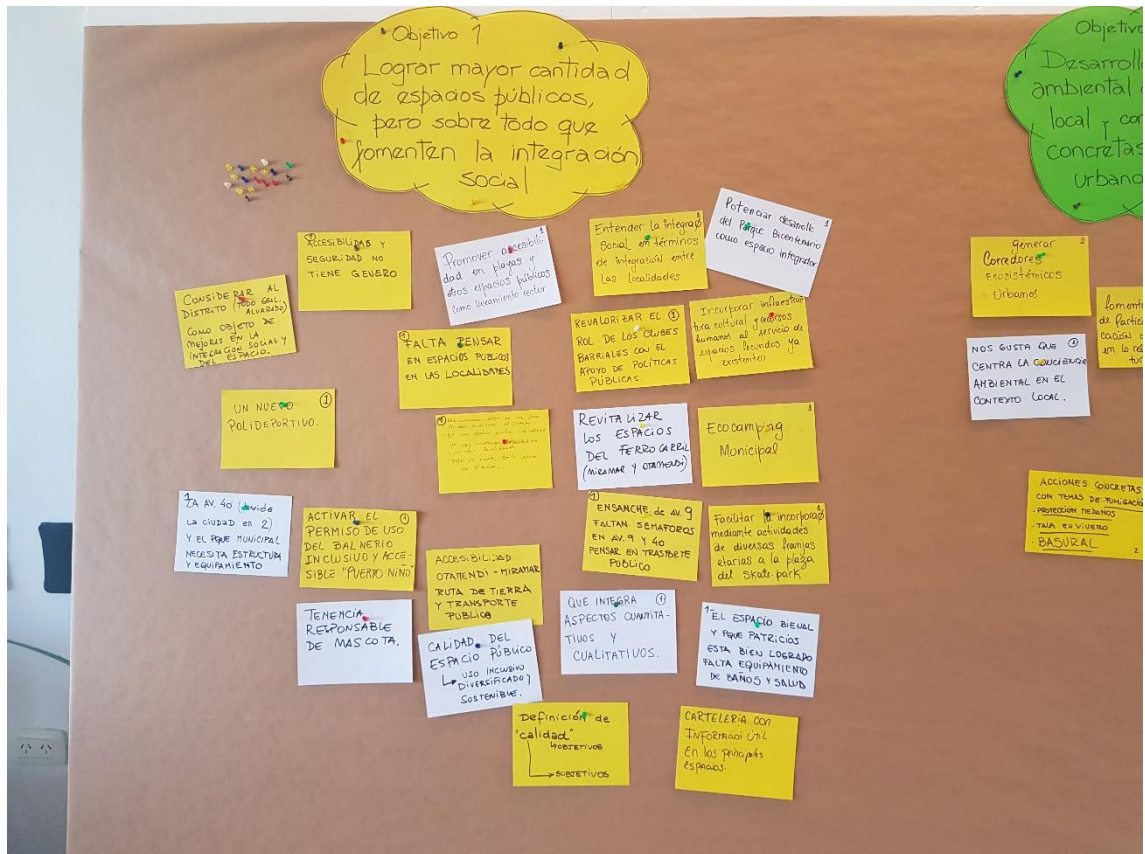 Objetivo 1
Lograr mayor cantidad
de espacios públicos,
pero sobre todo que
fomenten la integración
social
Objetivo
Desarrollo
ambiental
local y con
concretas
urbano
①
ACCESIBILIDAD Y
SEGURIDAD NO
TIENE GENERO
1
Promover accesibili-
dad en playas y
otros espacios públicos
como lineamiento rector
1
Entender la integra
Social en términos
de integración entre
las Localidades
1
Potenciar desarrollo
del Parque Bicentenario
como espacio integrador
CONSIDERAR AL
DISTRITO (TODO GRAL.
ALVARADO)
COMO OBJETO DE
MEJORAS EN LA
INTEGRACION SOCIAL Y
DEL ESPACIO.
①
FALTA PENSAR
EN ESPACIOS PUBLICOS
EN LAS LOCALIDADES
REVALORIZAR EL ①
ROL DE LOS CLUBES
BARRIALES CON EL
APOYO DE POLÍTICAS
PÚBLICAS.
1
Incorporar infraestruc
tura cultural y recursos
humanos al servicio de
espacios fecundos ya
existentes
UN NUEVO ①
POLIDEPORTIVO.
REVITALIZAR
LOS ESPACIOS
DEL FERROCARRIL
(MIRAMAR Y OTAMENDI)
1
Ecocamping
Municipal
1
LA AV. 40 (divide
LA CIUDAD EN 2)
Y EL PQUE MUNICIPAL
NECESITA ESTRUCTURA
Y EQUIPAMIENTO
ACTIVAR EL ①
PERMISO DE USO
DEL BALNERIO
INCLUSIVO Y ACCE-
SIBLE "PUERTO NIÑO"
ACCESIBILIDAD
OTAMENDI - MIRAMAR
RUTA DE TIERRA
Y TRANSPORTE
PUBLICO
①
ENSANCHE de AV. 9
FALTAN SEMAFOROS
EN AV. 9 Y 40
PENSAR EN TRASPORTE
PUBLICO
1
Facilitar la incorpora
mediante actividades
de diversas franjas
etarias a la plaza
del Skate park
TENENCIA
RESPONSABLE
DE MASCOTA.
CALIDAD DEL
ESPACIO PÚBLICO
↳ USO INCLUSIVO
DIVERSIFICADO Y
SOSTENIBLE.
QUE INTEGRA ①
ASPECTOS CUANTITA-
TIVOS Y
CUALITATIVOS.
1-
EL ESPACIO BIENAL
Y PQUE PATRICIOS
ESTA BIEN LOGRADO
FALTA EQUIPAMIENTO
DE BAÑOS Y SALUD
Definición de
"calidad"
↳ OBJETIVOS
↳ SUBJETIVOS
CARTELERIA CON
INFORMACI ÚTIL
En los principales
espacios.
generar 2
Corredores
Ecosistémicos
Urbanos
NOS GUSTA QUE ②
CENTRA LA CONCIENCIA
AMBIENTAL EN EL
CONTEXTO LOCAL.
fomenta
de Partici
cación
en lo re
tur
ACCIONES CONCRETAS
CON TEMAS DE: FUMIGACIÓ
- PROTECCIÓN MEDANOS
- TALA EN VIVERO
- BASURAL
2